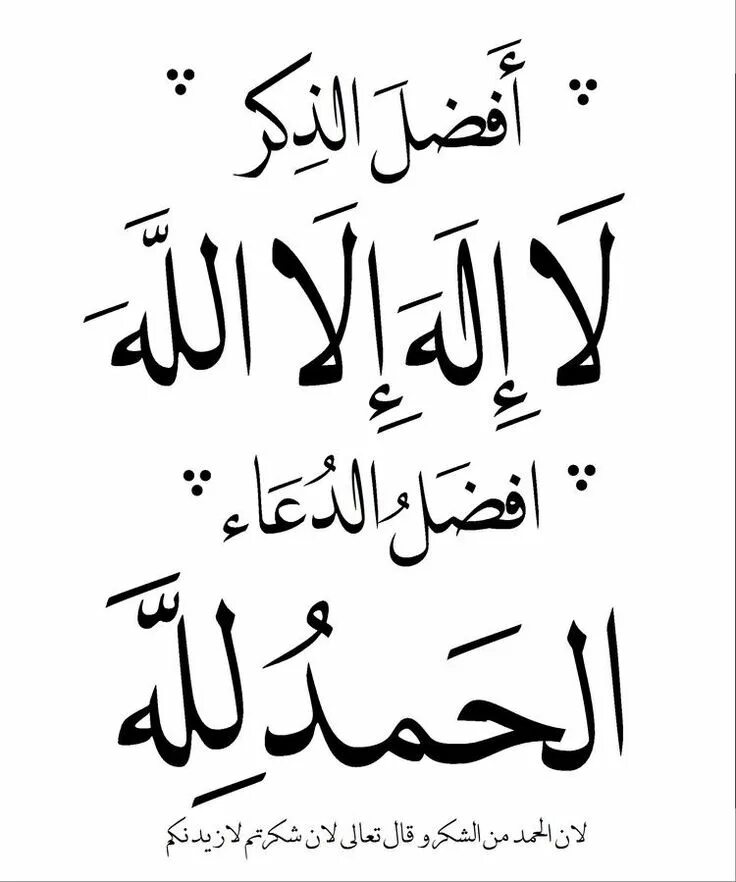 أَفضلَ الذِكر
لَا إِلهَ إِلَا اللَّهَ
افضَلُ الدُعَاء
الحَمدُ لِلَّه
لان الحمد من الشكر و قال تعالى لان شكرتم لازيدنكم